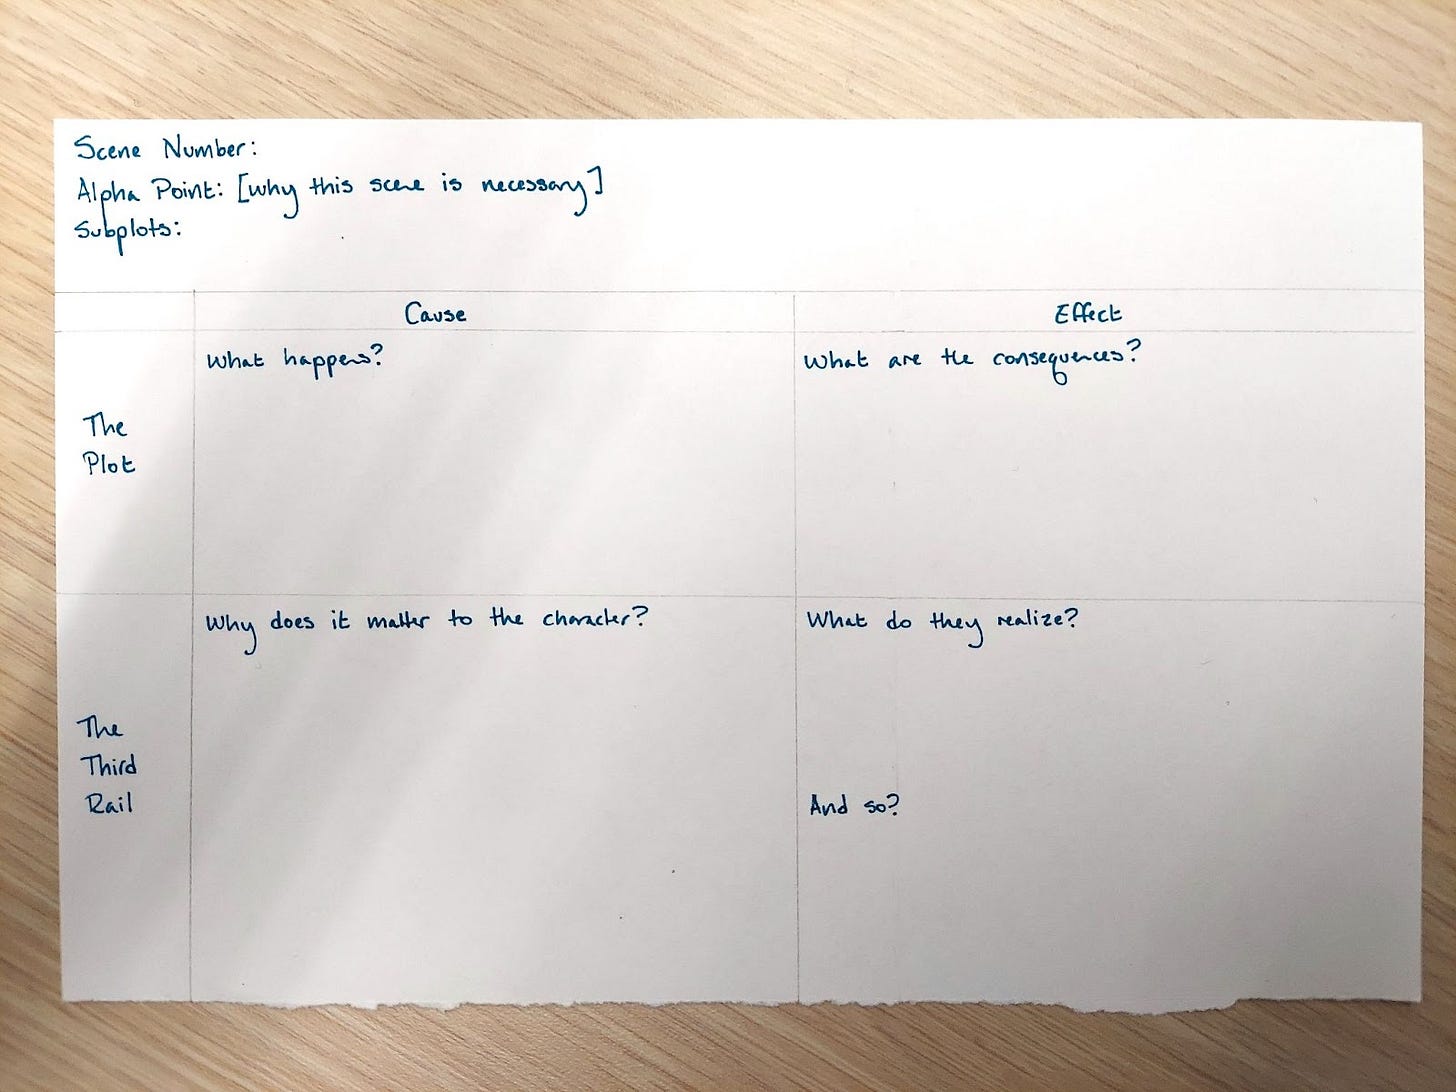 Scene Number:
Alpha Point: [why this scene is necessary]
Subplots:
Cause
Effect
What happens?
What are the consequences?
The
Plot
Why does it matter to the character?
What do they realize?
The
Third
Rail
And so?